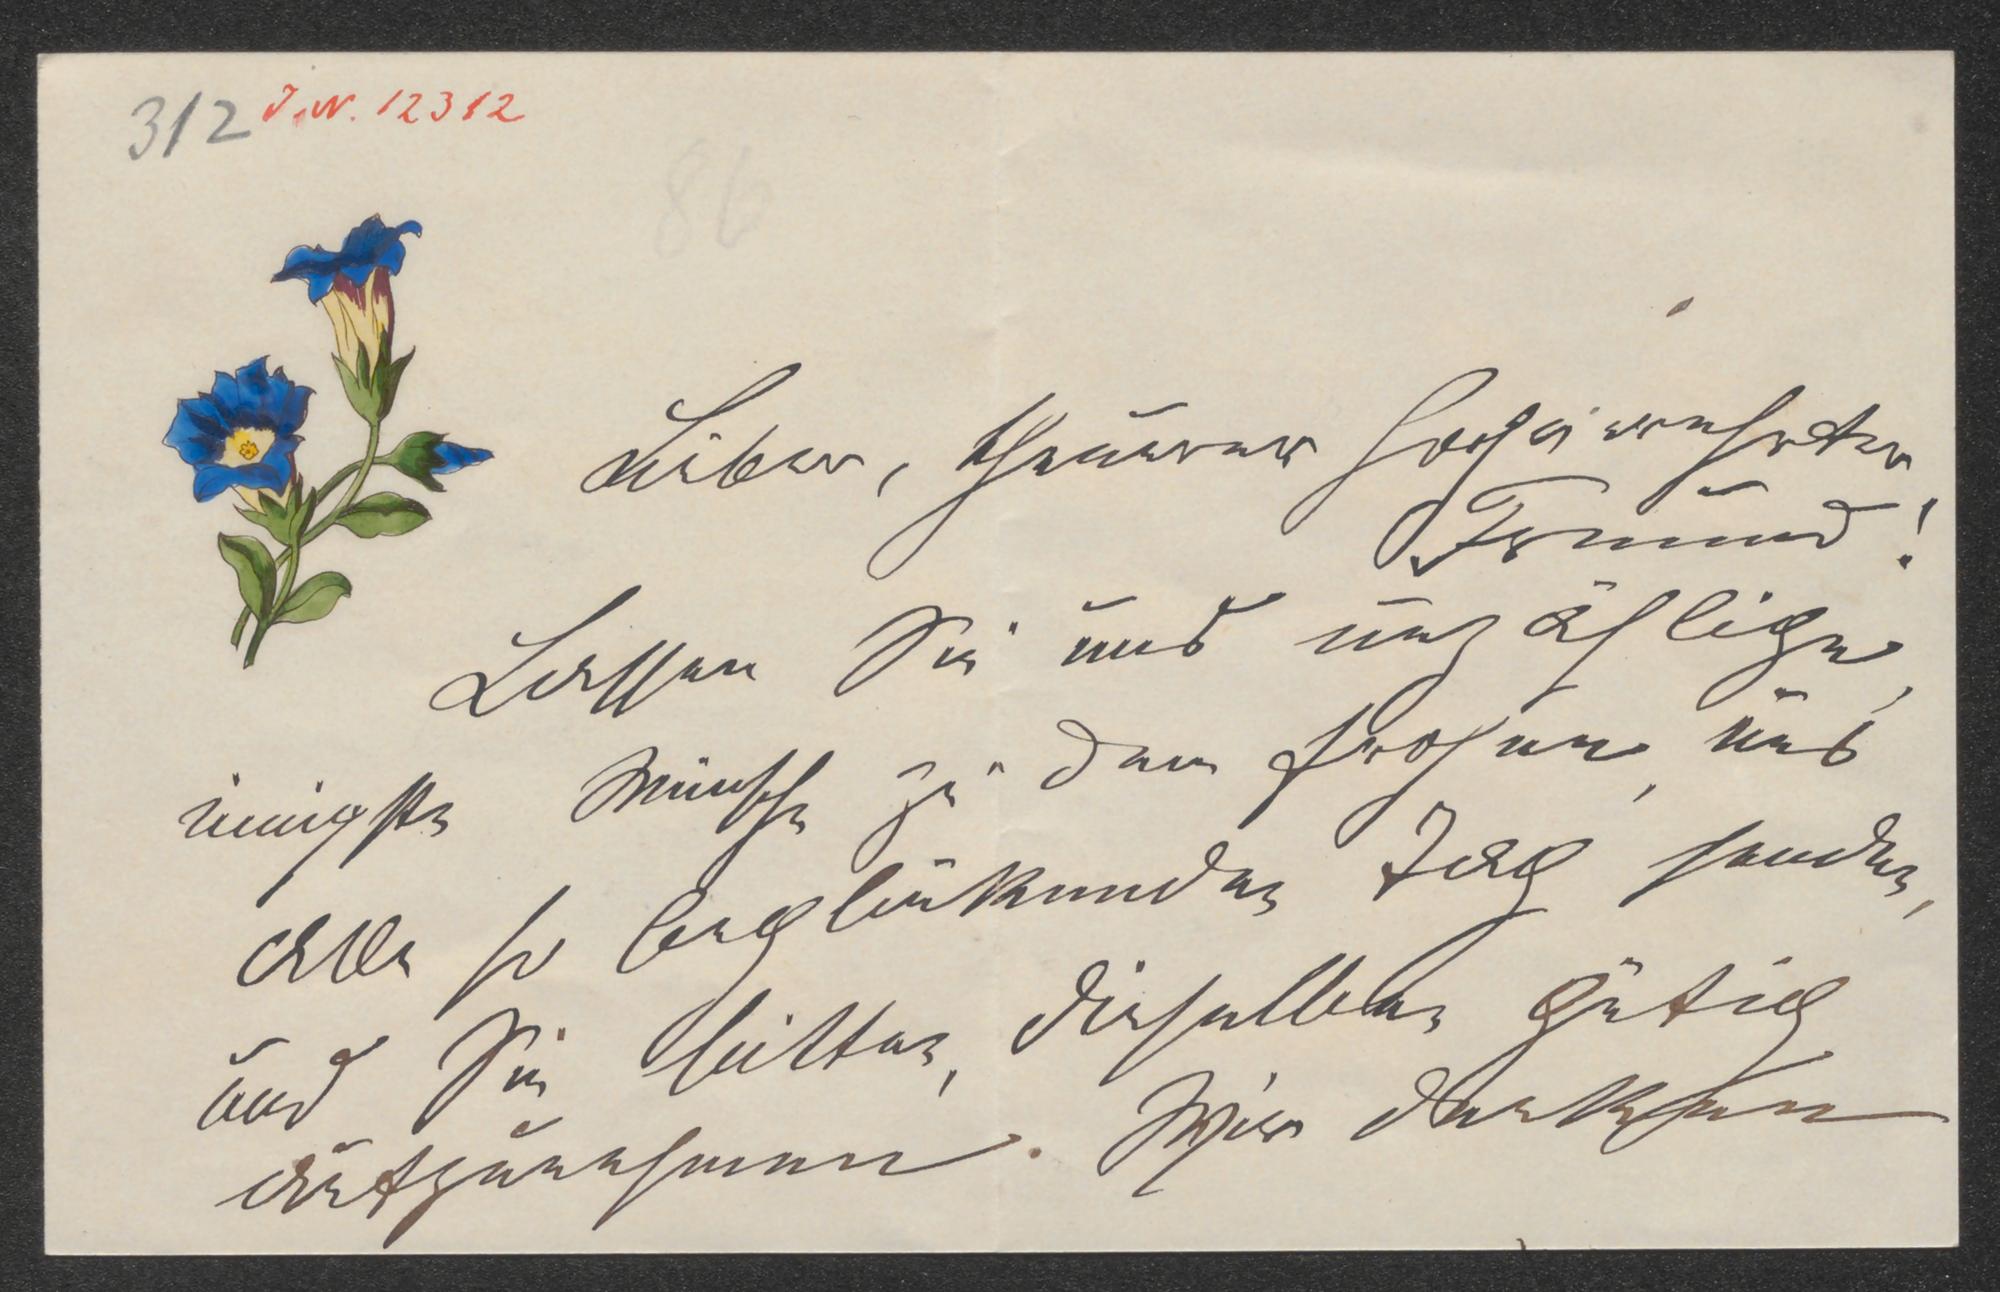 312 J.N. 12312
86
Lieber, theurer hochverehrter
Freund!
Lassen Sie uns unzählige,
innigste Wünsche zu dem frohen, uns
alle so beglückenden Tag senden,
und Sie bitten, dieselben gütig
aufzunehmen. Wir danken